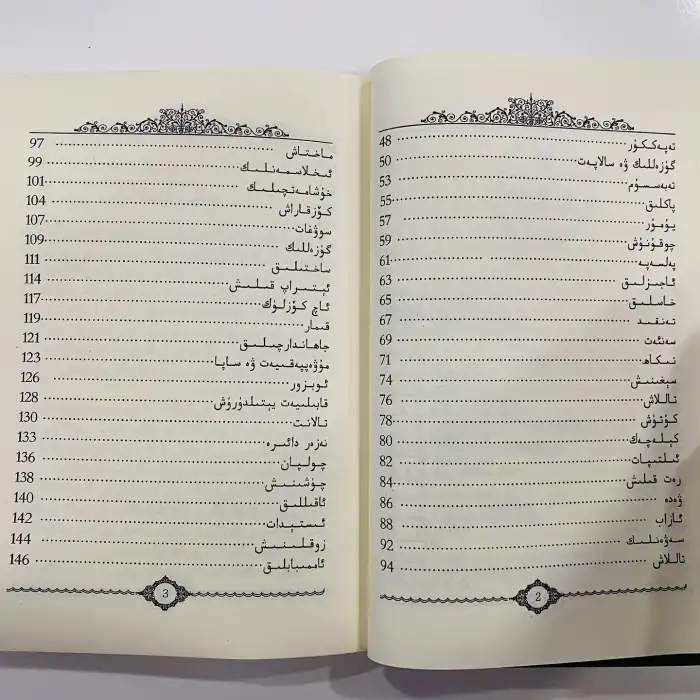 تەپەككۇر 48
گۈزەللىك ۋە سالاپەت 50
تەبەسسۇم 53
پاكلىق 55
يۇمۇر 57
چوقۇنۇش 59
پەلسەپە 61
ئاجىزلىق 63
خاسلىق 65
تەنقىد 67
سەنئەت 69
نىكاھ 71
سېغىنىش 74
تاللاش 76
كۈتۈش 78
كېلەچەك 80
ئىلتىپات 82
رەت قىلىش 84
ۋەدە 86
ئازاب 88
سەۋەنلىك 92
تاللاش 94
2
ماختاش 97
ئىخلاسمەنلىك 99
خۇشامەتچىلىك 101
كۆزقاراش 104
سوۋغات 107
گۈزەللىك 109
ساختىلىق 111
ئېتىراپ قىلىش 114
ئاچ كۆزلۈك 117
قىمار 119
جاھاندارچىلىق 121
مۇۋەپپەقىيەت ۋە ساپا 123
ئوبزور 126
قابىلىيەت يېتىلدۈرۈش 128
تالانت 130
نەزەر دائىرە 133
چولپان 136
چۈشىنىش 138
ئاقىللىق 140
ئىستېدات 142
زوقلىنىش 144
ئاممىبابلىق 146
3